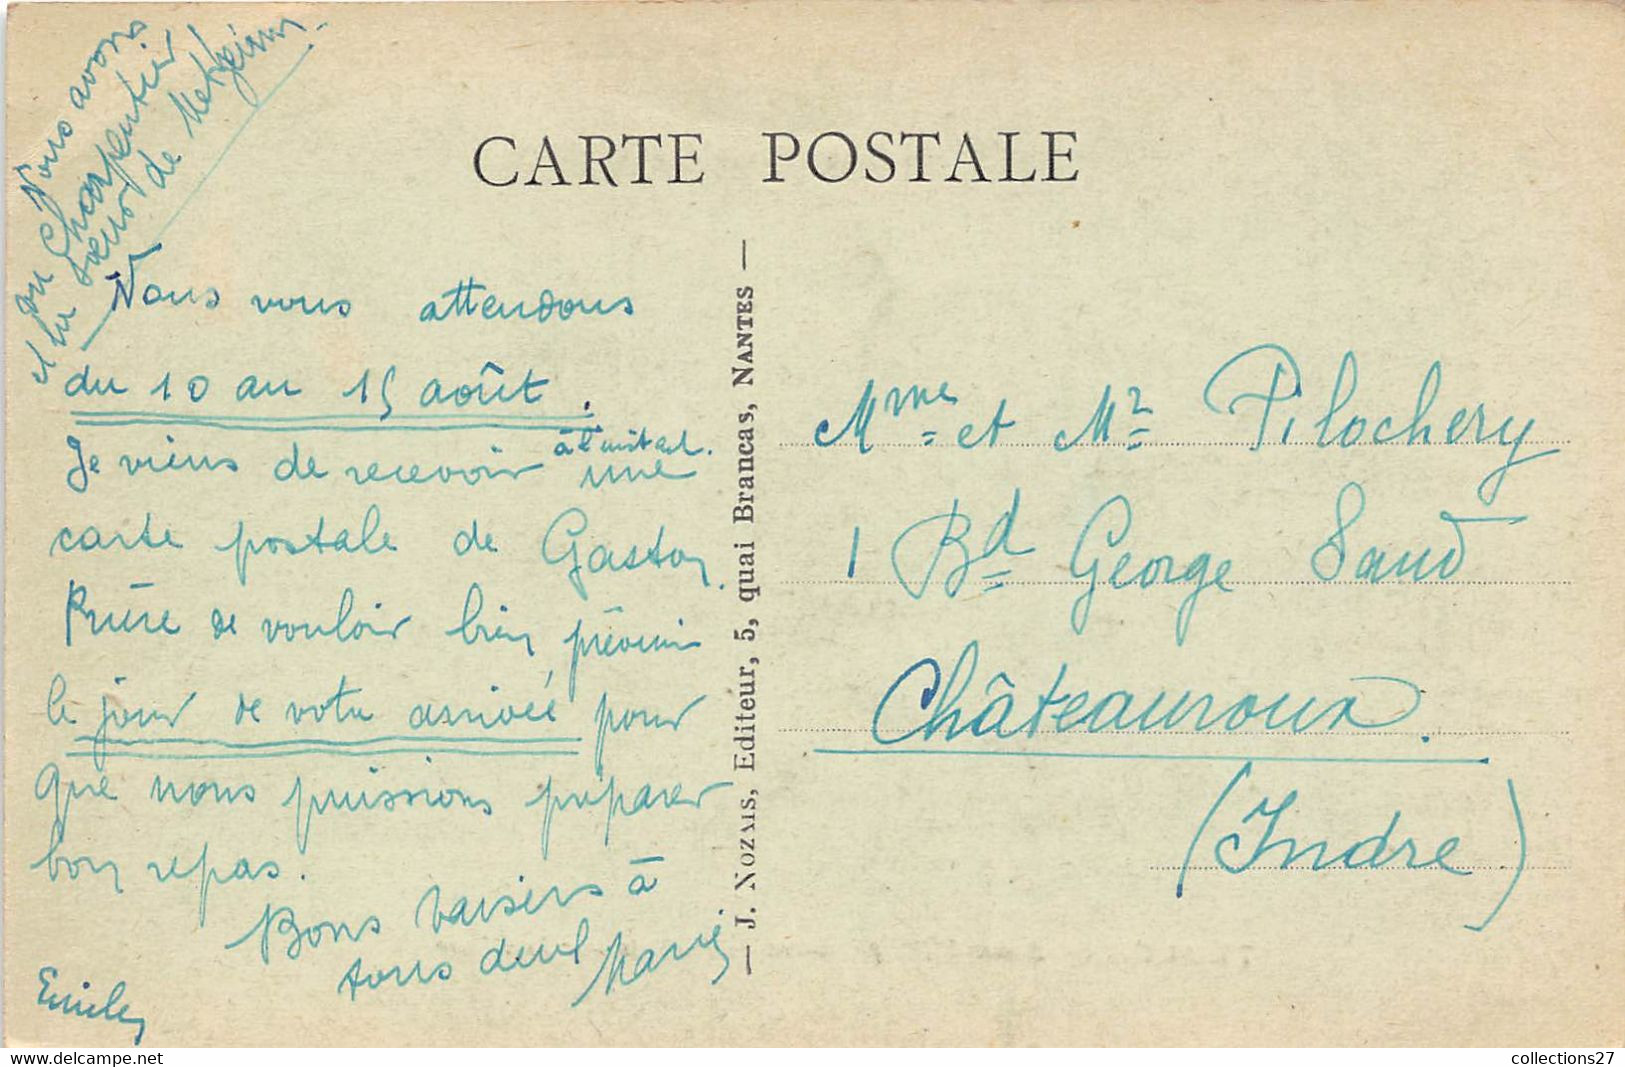 Nous avons
vu Charpentier
et la sœur
de
CARTE POSTALE
Nous vous attendons
du 10 au 15 août.
à l'instant.
Je viens de recevoir une
carte postale de Gaston.
Prière de vouloir bien prévenir
le jour de votre arrivée pour
que nous puissions préparer
bon repas.
Bons baisers à
tous deux
Marie
Emile
— J. NOZAIS, Editeur, 5, quai Brancas, NANTES —
Mme et Mr Pilochery
1 Bd George Sand
Châteauroux.
(Indre)
collections27